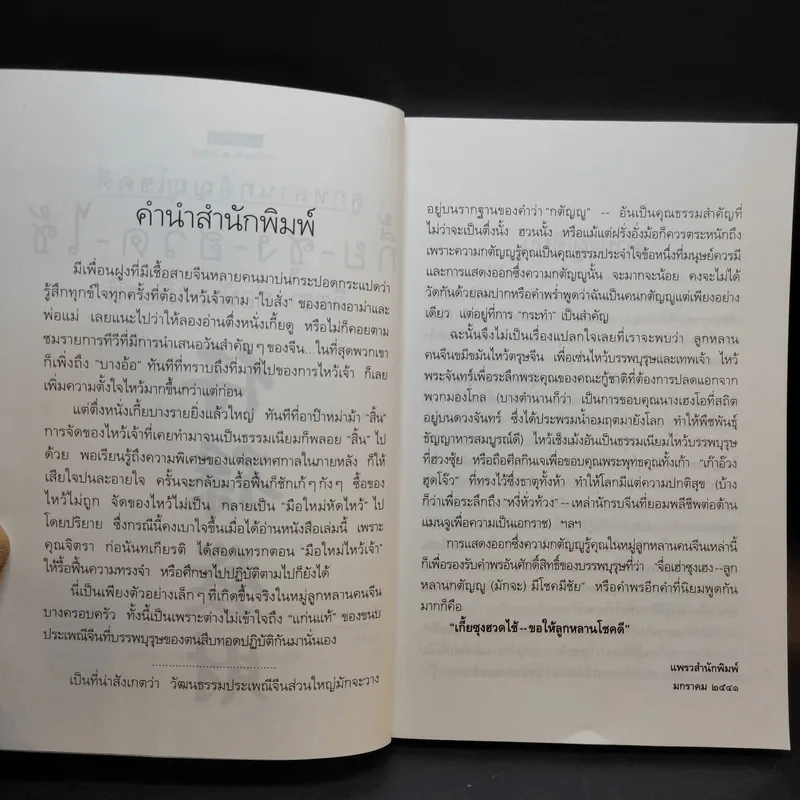 คำนำสำนักพิมพ์
มีเพื่อนฝูงที่มีเชื้อสายจีนหลายคนมาบ่นกระปอดกระแปดว่า
รู้สึกทุกข์ใจทุกครั้งที่ต้องไหว้เจ้าตาม "ใบสั่ง" ของอากงอาม่าและ
พ่อแม่ เลยแนะไปว่าให้ลองอ่านตึ่งหนั่งเกี้ยดู หรือไม่ก็คอยตาม
ชมรายการทีวีที่มีการนำเสนอวันสำคัญๆ ของจีน...ในที่สุดพวกเขา
ก็เพิ่งถึง "บางอ้อ" ทันทีที่ทราบถึงที่มาที่ไปของการไหว้เจ้า ก็เลย
เพิ่มความตั้งใจไหว้มากขึ้นกว่าแต่ก่อน
แต่ตึ่งหนั่งเกี้ยบางรายยิ่งแล้วใหญ่ ทันทีที่อาป๊าหม่าม้า "สิ้น"
การจัดของไหว้เจ้าที่เคยทำมาจนเป็นธรรมเนียมก็พลอย "สิ้น" ไป
ด้วย พอเรียนรู้ถึงความพิเศษของแต่ละเทศกาลในภายหลัง ก็ให้
เสียใจปนละอายใจ ครั้นจะกลับมารื้อฟื้นก็ชักเก้ๆ กังๆ ซื้อของ
ไหว้ไม่ถูก จัดของไหว้ไม่เป็น กลายเป็น "มือใหม่หัดไหว้" ไป
โดยปริยาย ซึ่งกรณีนี้คงเบาใจขึ้นเมื่อได้อ่านหนังสือเล่มนี้ เพราะ
คุณจิตรา ก่อนันทเกียรติ ได้สอดแทรกตอน "มือใหม่ไหว้เจ้า"
ให้รื้อฟื้นความทรงจำ หรือศึกษาไปปฏิบัติตามไปก็ยังได้
นี่เป็นเพียงตัวอย่างเล็กๆ ที่เกิดขึ้นจริงในหมู่ลูกหลานคนจีน
บางครอบครัว ทั้งนี้เป็นเพราะต่างไม่เข้าใจถึง "แก่นแท้" ของขนบ
ประเพณีจีนที่บรรพบุรุษของตนสืบทอดปฏิบัติกันมานั่นเอง
............................
เป็นที่น่าสังเกตว่า วัฒนธรรมประเพณีจีนส่วนใหญ่มักจะวาง
อยู่บนรากฐานของคำว่า "กตัญญู" -- อันเป็นคุณธรรมสำคัญที่
ไม่ว่าจะเป็นตึ่งนั้ง ฮวนนั้ง หรือแม้แต่ฝรั่งอั่งม้อก็ควรตระหนักถึง
เพราะความกตัญญูรู้คุณเป็นคุณธรรมประจำใจข้อหนึ่งที่มนุษย์ควรมี
และการแสดงออกซึ่งความกตัญญูนั้น จะมากจะน้อย คงจะไม่ได้
วัดกันด้วยลมปากหรือคำพร่ำพูดว่าฉันเป็นคนกตัญญูแต่เพียงอย่าง
เดียว แต่อยู่ที่การ "กระทำ" เป็นสำคัญ
ฉะนั้นจึงไม่เป็นเรื่องแปลกใจเลยที่เราจะพบว่า ลูกหลาน
คนจีนขมีขมันไหว้ตรุษจีน เพื่อเซ่นไหว้บรรพบุรุษและเทพเจ้า ไหว้
พระจันทร์เพื่อระลึกพระคุณของคณะกู้ชาติที่ต้องการปลดแอกจาก
พวกมองโกล (บางตำนานก็ว่า เป็นการขอบคุณนางเฮงโอที่สถิต
อยู่บนดวงจันทร์ ซึ่งได้ประพรมน้ำอมฤตมายังโลก ทำให้พืชพันธุ์
ธัญญาหารสมบูรณ์ดี) ไหว้เช็งเม้งอันเป็นธรรมเนียมไหว้บรรพบุรุษ
ที่ฮวงซุ้ย หรือถือศีลกินเจเพื่อขอบคุณพระพุทธคุณทั้งเก้า "เก๊าอ๊วง
ฮุดโจ๊ว" ที่ทรงไว้ซึ่งธาตุทั้งห้า ทำให้โลกมีแต่ความปกติสุข (บ้าง
ก็ว่าเพื่อระลึกถึง "หงี่หั่วท้วง" -- เหล่านักรบจีนที่ยอมพลีชีพต่อต้าน
แมนจูเพื่อความเป็นเอกราช) ฯลฯ
การแสดงออกซึ่งความกตัญญูรู้คุณในหมู่ลูกหลานคนจีนเหล่านี้
ก็เพื่อรองรับคำพรอันศักดิ์สิทธิ์ของบรรพบุรุษที่ว่า "จื่อเฮ่าซุงเฮง--ลูก
หลานกตัญญู (มักจะ) มีโชคมีชัย" หรือคำพรอีกคำที่นิยมพูดกัน
มากก็คือ
"เกี้ยซุงฮวดไช้ -- ขอให้ลูกหลานโชคดี"
แพรวสำนักพิมพ์
มกราคม ๒๕๔๑